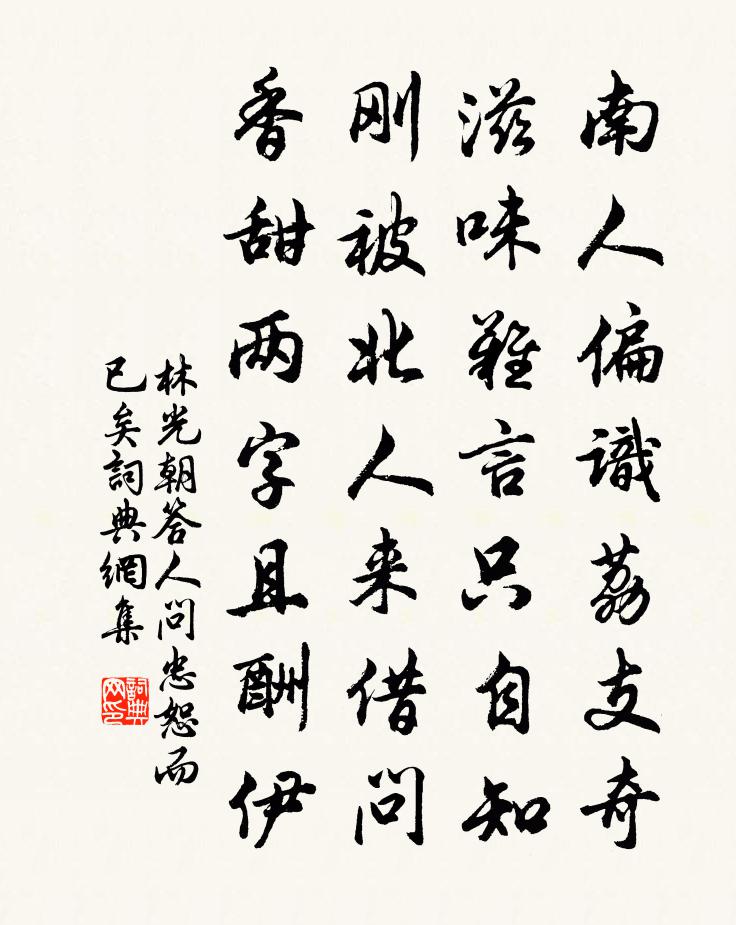 南人偏識荔支奇
滋味難言只自知
刚被北人来借問
香甜两字且酬伊
林光朝答人問忠恕而
已矣詞典網集
詞典网印